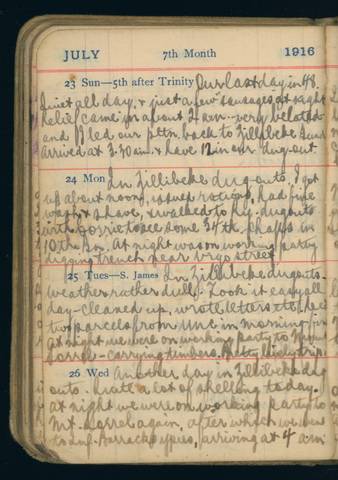 JULY 7th Month 1916
23 Sun—5th after Trinity Our last day in 48.
Quiet all day. & just a few sausages at night
Relief came in about 2 am—very belated
and I led our pltn. back to Zillebeke Bund
arrived at 3.30 am & have 12 in our dug-out
24 Mon In Zillebeke dugouts. I got
up about noon, issued rations, had fine
wash & shave, & walked to Ry. dugouts
with to see some 34th chaps in
10th Bn. At night was on working party
digging trench near
25 Tues—S. James In Zillebeke dugouts.
weather rather dull. Took it easy all
day—cleaned up, wrote letters etc.
two parcels from in morning
at night we were on working party to Mount
Sorrel—carrying timbers. trip
26 Wed Another day in Zillebeke dug
outs. quite a lot of shelling today.
at night we were on working party to
Mt. Sorrel again, after which we went
to Inf. Barracks Ypres, arriving at 4 am